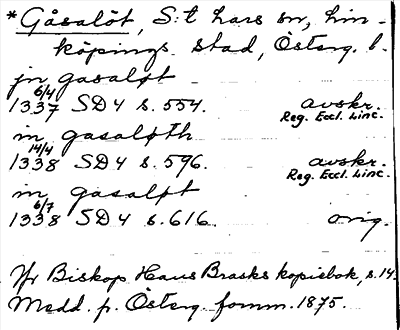 * Gåsalöt, S:t Lars sn, Lin-
köpings stad, Österg. l.
jn gasaløt
1337 6/4 SD 4 s. 554. avskr.
Reg. Eccl. Linc.
in gasaløth
1338 14/4 SD 4 s. 596. avskr.
Reg. Eccl. Linc.
in gasaløt
1338 6/7 SD 4 s. 616. orig.
Jfr Biskop Hans Brasks kopiebok, s. 14.
Medd. fr. Österg. fornm. 1875.